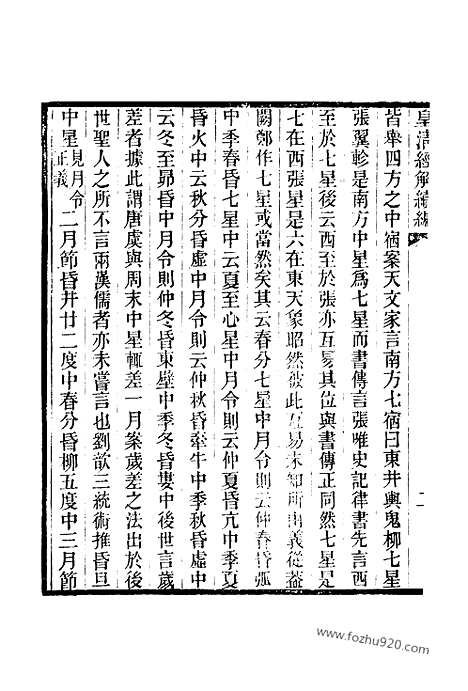 皇清經解續編
二
皆舉四方之中宿案天文家言南方七宿曰東井輿鬼柳七星
張翼軫是南方中星爲七星而書傳言張唯史記律書先言西
至於七星後云西至於張亦互易其位與書傳正同然七星是
七在西張星是六在東天象昭然彼此互易未知所由義從蓋
闕鄭作七星或當然矣其云春分七星中月令則云仲春昏弧
中季春昏七星中云夏至心星中月令則云仲夏昏亢中季夏
昏火中云秋分昏虛中月令則云仲秋昏牽牛中季秋昏虛中
云冬至昴昏中月令則仲冬昏東壁中季冬昏婁中後世言歲
差者據此謂唐虞與周末中星輒差一月案歲差之法出於後
世聖人之所不言兩漢儒者亦未嘗言也劉歆三統術推昏旦
中星見月令正義二月節昏井廿二度中春分昏柳五度中三月節
www.fozhu920.com